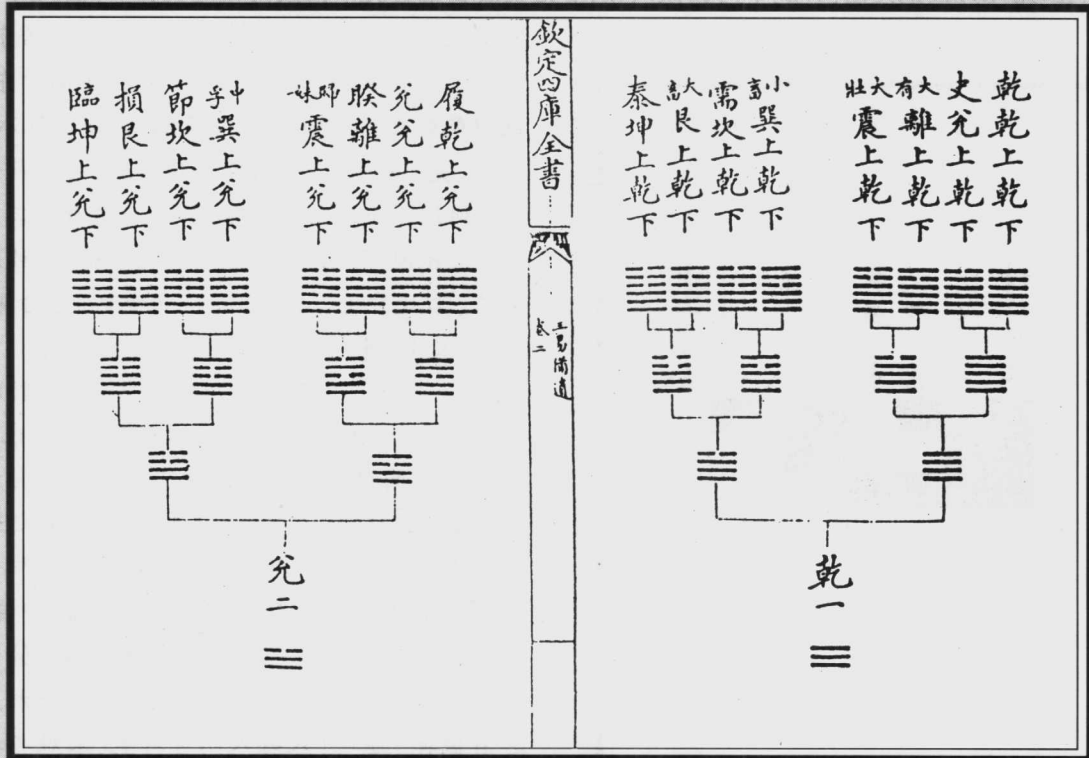 乾乾上乾下
夬兊上乾下
大有離上乾下
大壯震上乾下
小畜巽上乾下
需坎上乾下
大畜艮上乾下
泰坤上乾下
乾一
欽定四庫全書
卷二
履乾上兊下
兊兊上兊下
睽離上兊下
歸妹震上兊下
中孚巽上兊下
節坎上兊下
損艮上兊下
臨坤上兊下
兊二